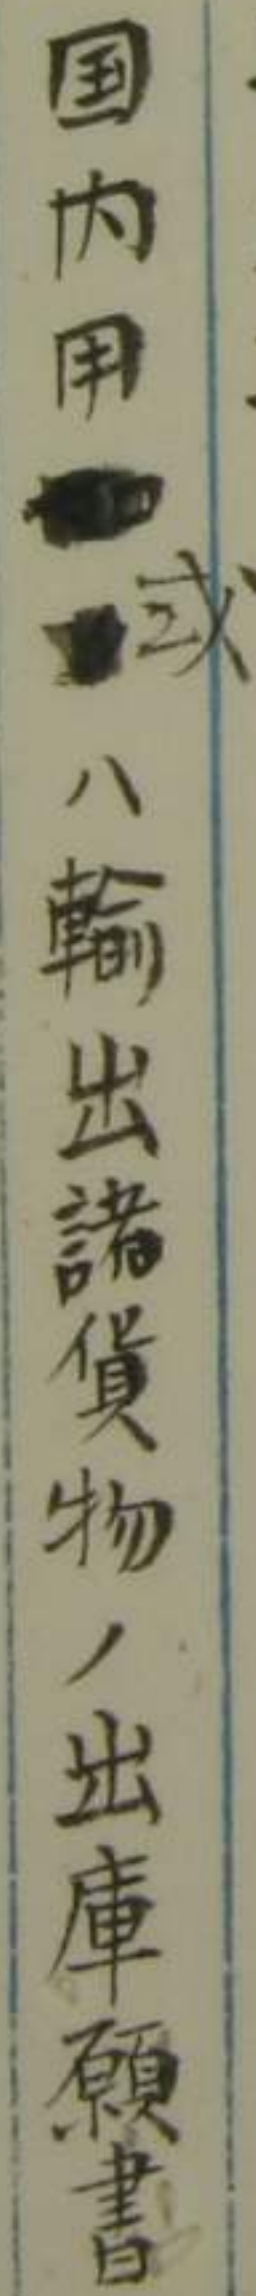 国内用或ハ輸出諸貨物ノ出庫願書